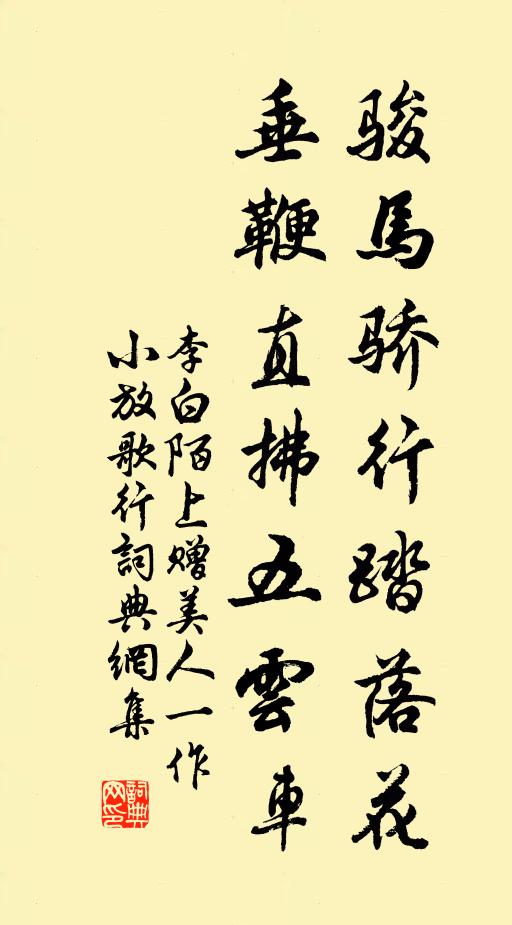 骏馬骄行踏落花
垂鞭直拂五雲車
李白陌上赠美人一作
小放歌行詞典網集
詞典网印